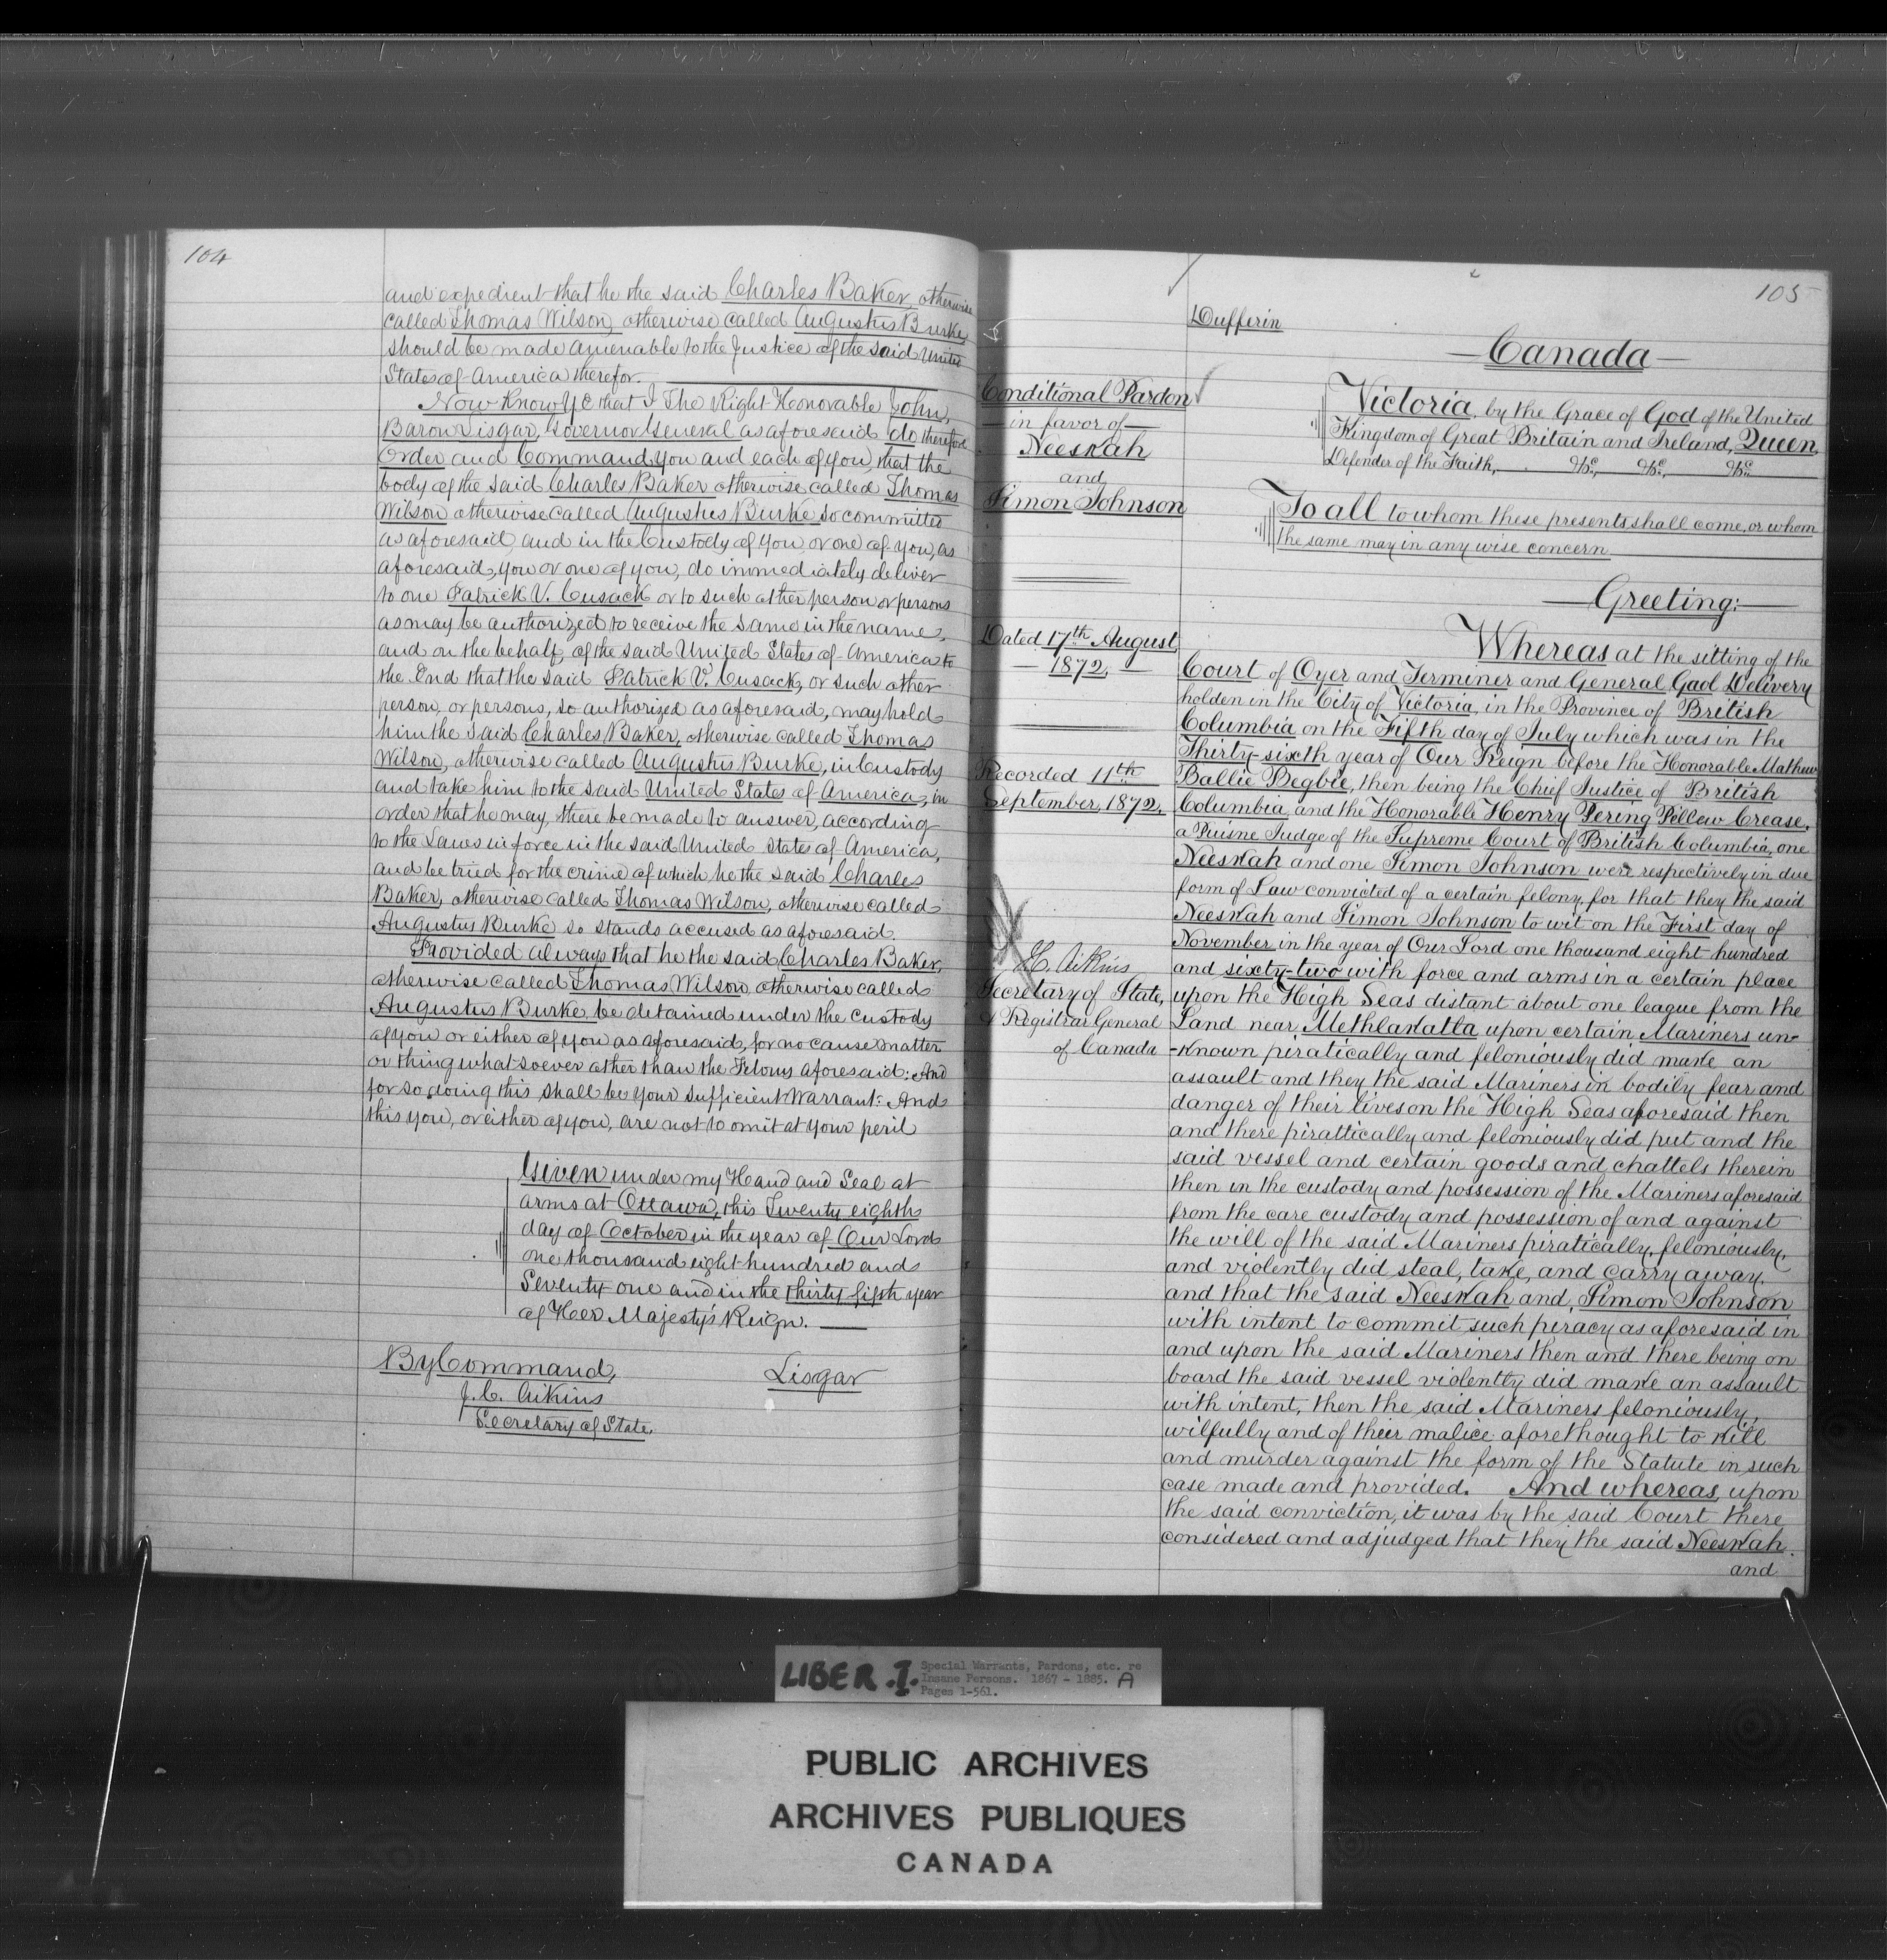 104
and expedient that he the said Charles Baker, otherwise
called Thomas Wilson, otherwise called Augustus Burke,
should be made amenable to the Justice of the said United
States of America therefor.
Now Know Ye that I The Right Honorable John,
Baron Lisgar, Governor General as aforesaid do therefore
Order and Command you and each of you, that the
body of the said Charles Baker otherwise called Thomas
Wilson otherwise called Augustus Burke so committed
as aforesaid, and in the Custody of you, or one of you, as
aforesaid, you or one of you, do immediately deliver
to one Patrick V. Cusack or to such other person or persons
as may be authorized to receive the same in the name,
and on the behalf, of the said United States of America to
the End that the said Patrick V. Cusack, or such other
person, or persons, so authorized as aforesaid, may hold
him the said Charles Baker, otherwise called Thomas
Wilson, otherwise called Augustus Burke, in Custody
and take him to the said United States of America, in
order that he may, there be made to answer, according
to the Laws in force in the said United States of America,
and be tried for the crime of which he the said Charles
Baker, otherwise called Thomas Wilson, otherwise called
Augustus Burke so stands accused as aforesaid
Provided always that he the said Charles Baker,
otherwise called Thomas Wilson otherwise called
Augustus Burke, be detained under the custody
of you or either of you as aforesaid, for no cause matter
or thing whatsoever other than the Felony aforesaid: And
for so doing this shall be your sufficient Warrant: And
this you, or either of you, are not to omit at your peril
Given under my Hand and Seal at
arms at Ottawa, this Twenty eighth
day of October in the year of Our Lord
one thousand eight hundred and
Seventy one and in the thirty fifth year
of Her Majesty's Reign.
By Command,
Lisgar
J. C. Aikins
Secretary of State.
105
Dufferin
Canada
Conditional Pardon
in favor of
Neeskah
and
Simon Johnson
Dated 17th August
1872,
Recorded 11th
September, 1872.
H. Aikins
Secretary of State,
& Registrar General
of Canada
Victoria, by the Grace of God of the United
Kingdom of Great Britain and Ireland, Queen,
Defender of the Faith, &c, &c, &c
To all to whom these presents shall come, or whom
the same may in any wise concern
Greeting:
Whereas at the sitting of the
Court of Oyer and Terminer and General Gaol Delivery
holden in the City of Victoria, in the Province of British
Columbia on the Fifth day of July which was in the
Thirty-sixth year of Our Reign before the Honorable Mathew
Ballie Begbie, then being the Chief Justice of British
Columbia, and the Honorable Henry Pering Pellew Crease,
a Puisne Judge of the Supreme Court of British Columbia, one
Neeskah and one Simon Johnson were respectively in due
form of Law convicted of a certain felony, for that they the said
Neeskah and Simon Johnson to wit on the First day of
November in the year of Our Lord one thousand eight hundred
and sixty-two with force and arms in a certain place
upon the High Seas distant about one league from the
Land near Methlakatla upon certain Mariners un-
-known piratically and feloniously did make an
assault and they the said Mariners in bodily fear and
danger of their lives on the High Seas aforesaid then
and there pirattically and feloniously did put and the
said vessel and certain goods and chattels therein
then in the custody and possession of the Mariners aforesaid
from the care custody and possession of and against
the will of the said Mariners piratically, feloniously,
and violently did steal, take, and carry away.
and that the said Neeskah and, Simon Johnson
with intent to commit such piracy as aforesaid in
and upon the said Mariners then and there being on
board the said vessel violently did make an assault
with intent, then the said Mariners feloniously,
wilfully and of their malice aforethought to kill
and murder against the form of the Statute in such
case made and provided. And whereas, upon
the said conviction, it was by the said Court there
considered and adjudged that they the said Neeskah
and
LIBER .I. A
Special Warrants, Pardons, etc. re
Insane Persons. 1867 - 1885.
Pages 1-561.
PUBLIC ARCHIVES
ARCHIVES PUBLIQUES
CANADA